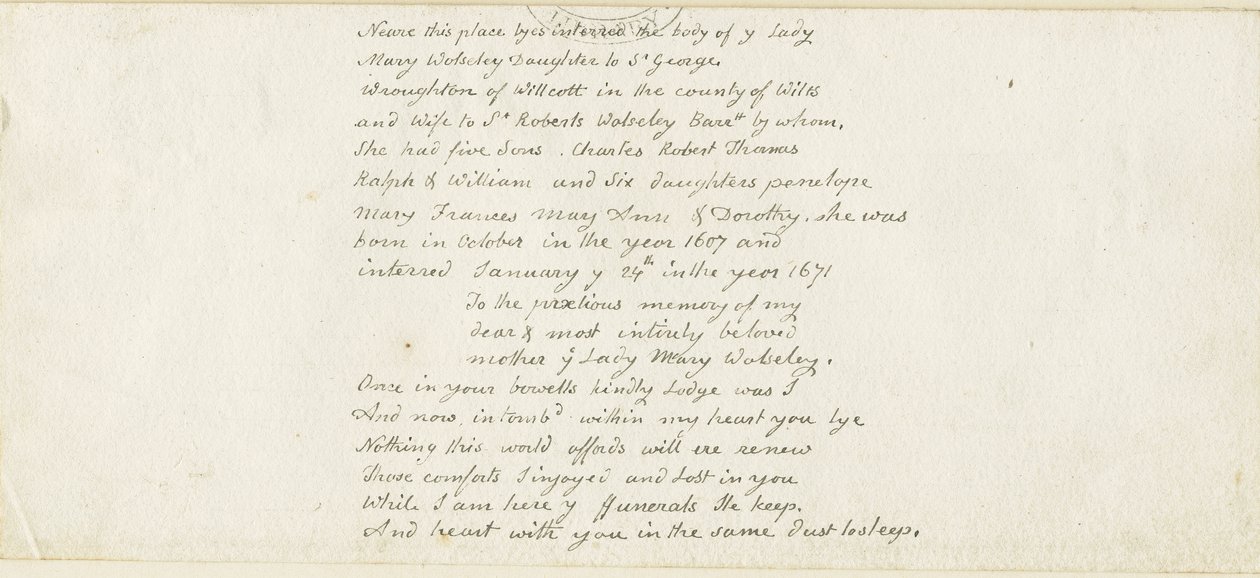 LIBRARY
Neare this place lyes interred the body of y Lady
Mary Wolseley Daughter to Sr George
Wroughton of Willcott in the county of Wilts
and Wife to Sr Roberts Wolseley Barrtt by whom,
She had five Sons . Charles Robert Thomas
Ralph & William and Six daughters penelope
Mary Frances Mary Ann & Dorothy. she was
born in October in the year 1607 and
interred January y 24th in the year 1671
To the pretious memory of my
dear & most intirely beloved
mother ye Lady Mary Wolseley.
Once in your bowells kindly Lodge was I
And now intombd within my heart you lye
Nothing this world affords will ere renew
Those comforts I injoyed and Lost in you
While I am here y ffunerals Ile keep.
And heart with you in the same dust to sleep.